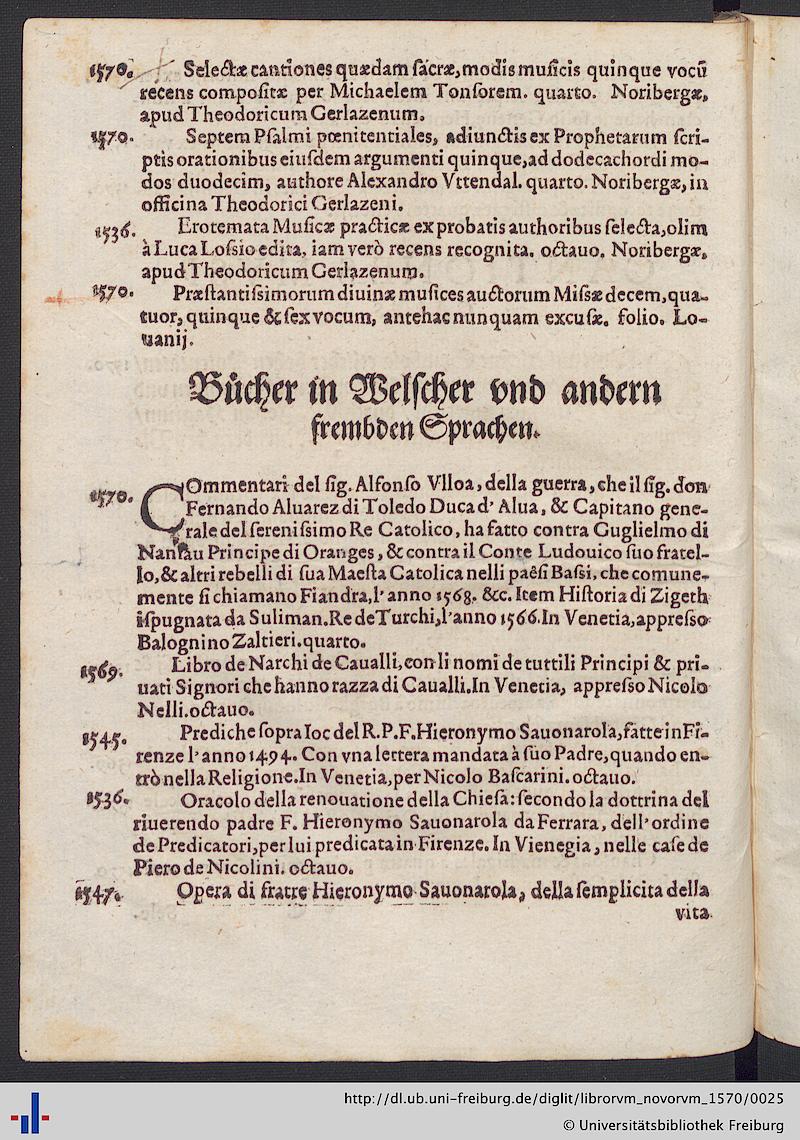 1570. Selectæ cantiones quædam sacræ, modis musicis quinque vocũ
recens compositæ per Michaelem Tonsorem. quarto. Noribergæ,
apud Theodoricum Gerlazenum.
1570. Septem Psalmi pœnitentiales, adiunctis ex Prophetarum scri-
ptis orationibus eiusdem argumenti quinque, ad dodecachordi mo-
dos duodecim, authore Alexandro Vttendal. quarto. Noribergæ, in
officina Theodorici Gerlazeni.
1536. Erotemata Musicæ practicæ ex probatis authoribus selecta, olim
à Luca Lossio edita, iam verò recens recognita. octauo. Noribergæ,
apud Theodoricum Gerlazenum.
1570. Præstantissimorum diuinæ musices auctorum Missæ decem, qua-
tuor, quinque & sex vocum, antehac nunquam excusæ. folio. Lo-
uanij.
Bücher in Welscher vnd andern
frembden Sprachen.
1570. COmmentari del sig. Alfonso Vlloa, della guerra, che il sig. don
Fernando Aluarez di Toledo Duca d' Alua, & Capitano gene-
rale del serenissimo Re Catolico, ha fatto contra Guglielmo di
Nansau Principe di Oranges, & contra il Conte Ludouico suo fratel-
lo, & altri rebelli di sua Maesta Catolica nelli paêsi Bassi, che comune-
mente si chiamano Fiandra, l' anno 1568. &c. Item Historia di Zigeth
ispugnata da Suliman. Re de Turchi, l'anno 1566. In Venetia, appresso
Balognino Zaltieri. quarto.
1569. Libro de Narchi de Caualli, con li nomi de tutti li Principi & pri-
uati Signori che hanno razza di Caualli. In Venetia, appresso Nicolo
Nelli. octauo.
1545. Prediche sopra Ioc del R. P. F. Hieronymo Sauonarola, fatte in Fi-
renze l'anno 1494. Con vna lettera mandata à suo Padre, quando en-
trò nella Religione. In Venetia, per Nicolo Bascarini. octauo.
1536. Oracolo della renouatione della Chiesa: secondo la dottrina del
riuerendo padre F. Hieronymo Sauonarola da Ferrara, dell' ordine
de Predicatori, per lui predicata in Firenze. In Vienegia, nelle case de
Piero de Nicolini. octauo.
1547. Opera di fratre Hieronymo Sauonarola, della semplicita della
vita
http://dl.ub.uni-freiburg.de/diglit/librorvm_novorvm_1570/0025
© Universitätsbibliothek Freiburg